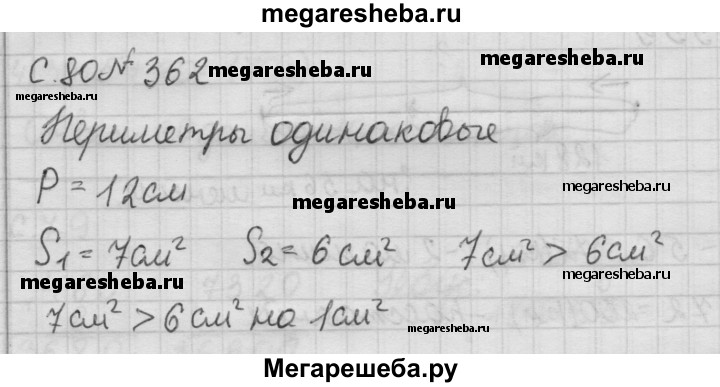 megaresheba.ru
С. 80 № 362 megaresheba.ru megaresheba.ru
megaresheba.ru
Периметры одинаковые
P = 12 см megaresheba.ru megaresheba.ru
S₁ = 7 см² S₂ = 6 см² 7 см² > 6 см²
megaresheba.ru megaresheba.ru
7 см² > 6 см² на 1 см² megaresheba.ru
Мегарешеба.ру